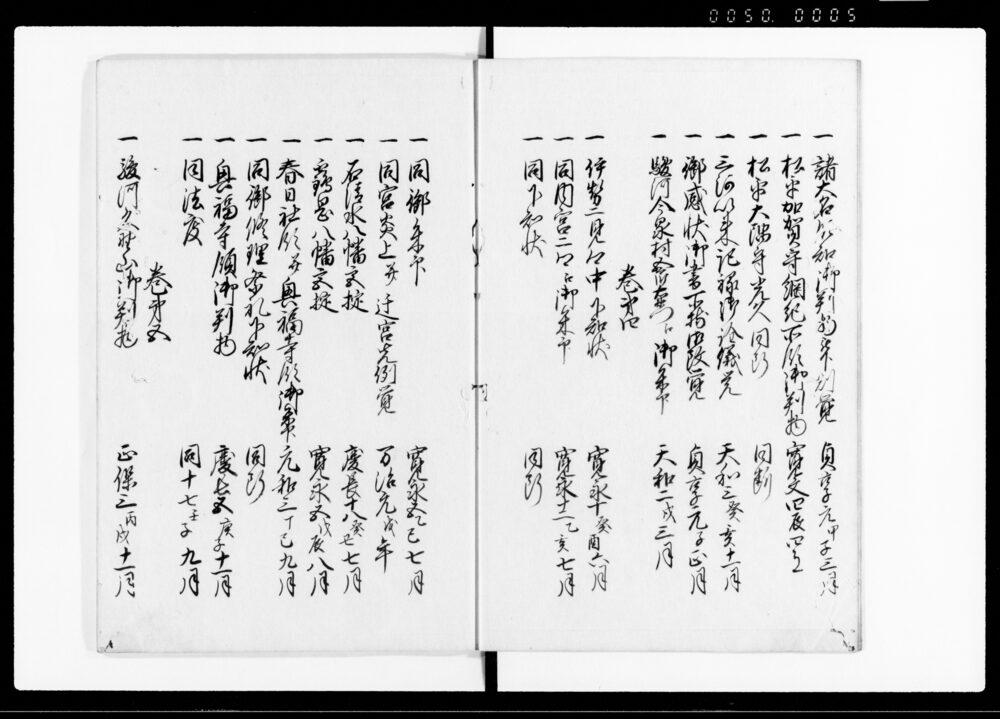 0050. 0005
一 諸大名 御加御判物 覚 貞享元甲子三月
一 松平加賀守綱紀 所領御判物 寛文四辰四
一 松平大隅守 同断
一 三河以来記禄御詮儀覚 天和三癸亥十一月
一 御感状御書 御改覚 貞享元子正月
一 駿河今泉村 御朱印 天和二戌三月
巻第四
一 伊勢二見 中下知状 寛永十癸酉六月
一 同内宮二 御朱印 寛永十二乙亥七月
一 同下知状 同断
一 同御朱印 寛永 乙巳七月
一 同宮炎上并迁宮先例覚 万治元戌年
一 石清水八幡宮掟 慶長十八癸丑七月
一 鶴岡八幡宮掟 寛永五戊辰八月
一 春日社領并興福寺領御朱印 元和三丁巳九月
一 同御修理 下知状 同断
一 興福寺領御判物 慶長五庚子十一月
一 同法度 同十七壬子九月
巻第五
一 駿河久能山御判形 正保三丙戌十一月